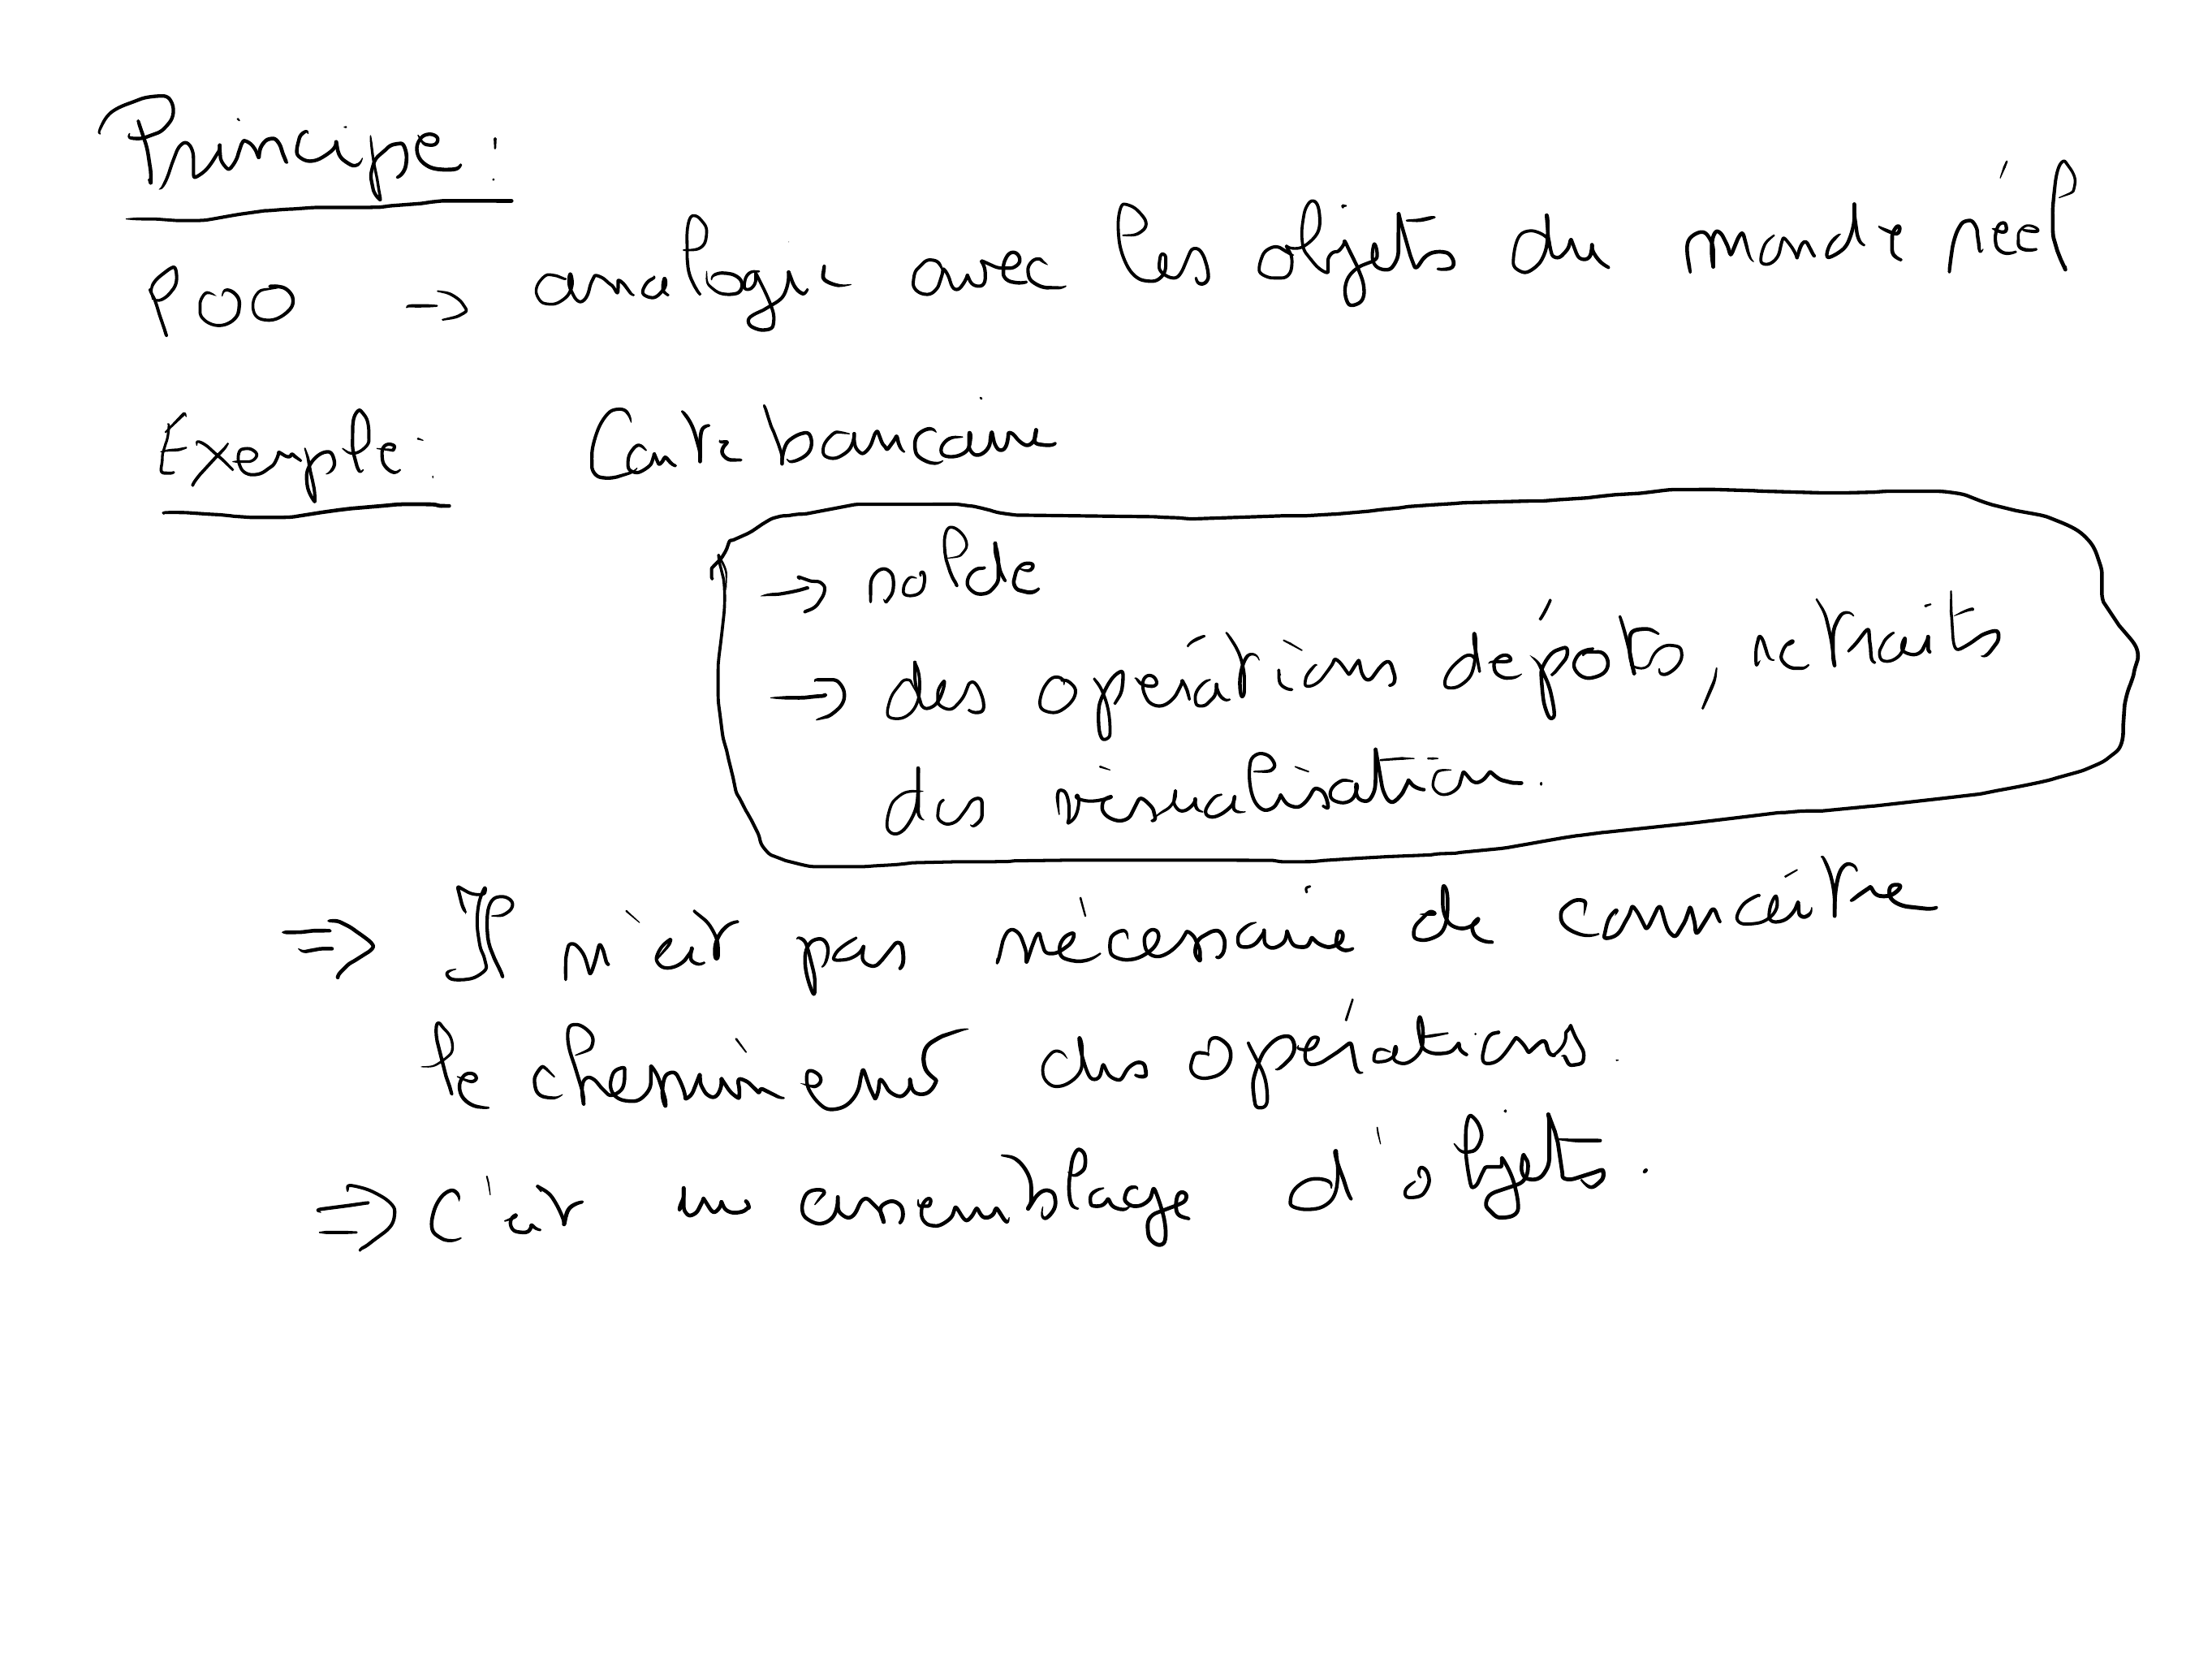 Principe :
POO → analogue avec les objets du monde réel
Exemple : Carte bancaire
→ solde
→ des opérations dépots, retraits
des visualisation.
⇒ Il n'est pas nécessaire de connaître
le cheminement des opérations.
⇒ C'est un assemblage d'objets.